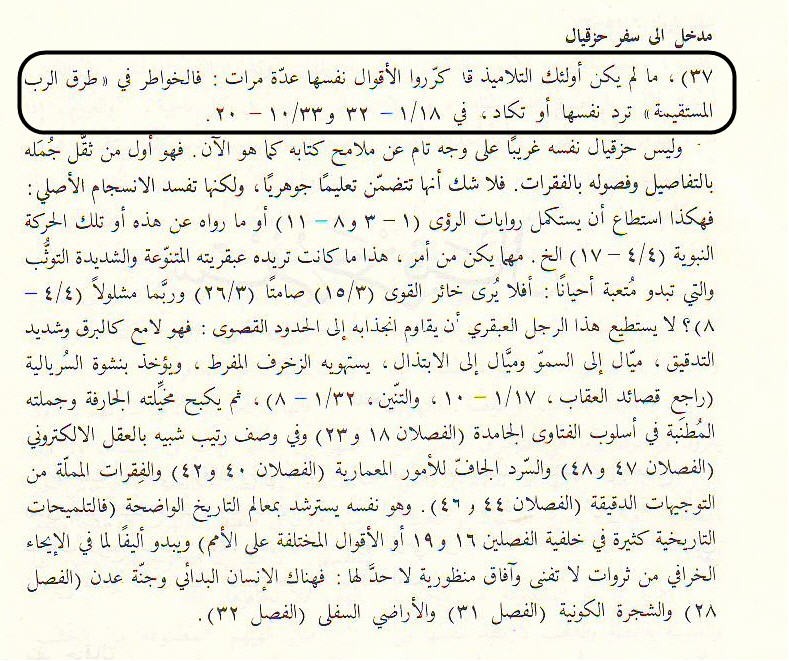 مدخل الى سفر حزقيال
٣٧)، ما لم يكن أولئك التلاميذ قد كرّروا الأقوال نفسها عدّة مرات : فالخواطر في «طرق الرب
المستقيمة» ترد نفسها أو تكاد، في ١/١٨ – ٣٢ و١٠/٣٣ – ٢٠.
وليس حزقيال نفسه غريبًا على وجه تام عن ملامح كتابه كما هو الآن. فهو أول من ثقّل جُمَله
بالتفاصيل وفصوله بالفقرات. فلا شك أنها تتضمّن تعليمًا جوهريًا، ولكنها تفسد الانسجام الأصلي :
فهكذا استطاع أن يستكمل روايات الرؤى (١ – ٣ و٨ – ١١) أو ما رواه عن هذه أو تلك الحركة
النبوية (٤/٤ – ١٧) الخ. مهما يكن من أمر، هذا ما كانت تريده عبقريته المتنوّعة والشديدة التوثُّب
والتي تبدو مُتعبة أحيانًا : أفلا يُرى خائر القوى (١٥/٣) صامتًا (٢٦/٣) وربَّما مشلولاً (٤/٤ –
٨)؟ لا يستطيع هذا الرجل العبقري أن يقاوم انجذابه إلى الحدود القصوى : فهو لامع كالبرق وشديد
التدقيق، ميّال إلى السموّ وميَّال إلى الابتذال، يستهويه الزخرف المفرط، ويؤخذ بنشوة السُريالية
(راجع قصائد العقاب، ١/١٧ – ١٠، والتنّين، ١/٣٢ – ٨)، ثم يكبح مخيِّلته الجارفة وجملته
المُطنَبة في أسلوب الفتاوى الجامدة (الفصلان ١٨ و٢٣) وفي وصف رتيب شبيه بالعقل الالكتروني
(الفصلان ٤٧ و٤٨) والسّرد الجافّ للأمور المعمارية (الفصلان ٤٠ و٤٢) والفِقرات المملّة من
التوجيهات الدقيقة (الفصلان ٤٤ و ٤٦). وهو نفسه يسترشد بمعالم التاريخ الواضحة (فالتلميحات
التاريخية كثيرة في خلفية الفصلين ١٦ و١٩ أو الأقوال المختلفة على الأمم) ويبدو أليفًا لما في الإيحاء
الخرافي من ثروات لا تفنى وآفاق منظورية لا حدَّ لها : فهناك الإنسان البدائي وجنّة عدن (الفصل
٢٨) والشجرة الكونية (الفصل ٣١) والأراضي السفلى (الفصل ٣٢).